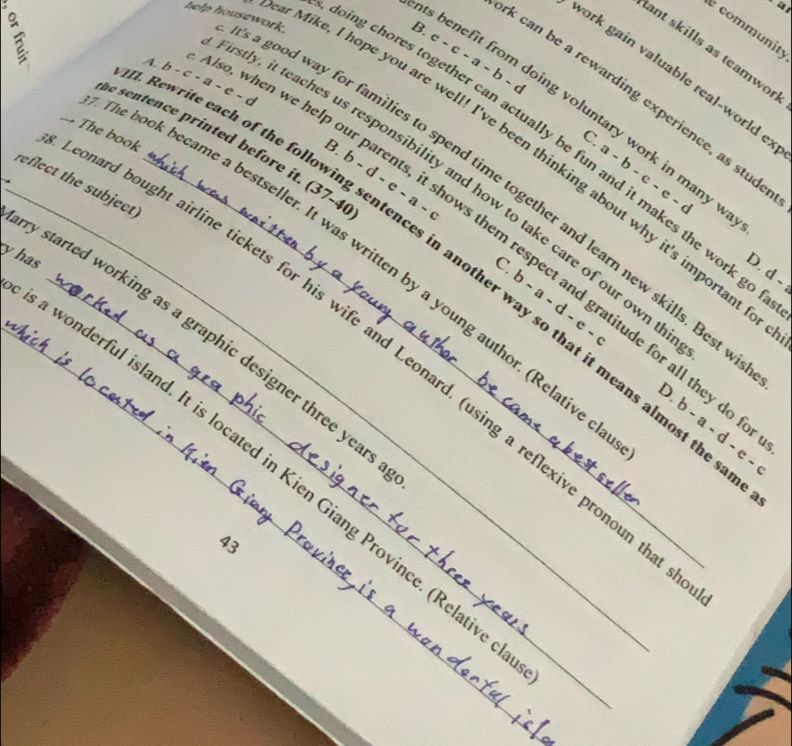 e community,
rtant skills as teamwork
work gain valuable real-world expe
ork can be a rewarding experience, as students
ents benefit from doing voluntary work in many ways.
B. e - c - a - b - d C. a - b - c - e - d D. d - a
es, doing chores together can actually be fun and it makes the work go faster
Dear Mike, I hope you are well! I've been thinking about why it's important for chil
help housework.
c. It's a good way for families to spend time together and learn new skills. Best wishes.
d. Firstly, it teaches us responsibility and how to take care of our own things.
e. Also, when we help our parents, it shows them respect and gratitude for all they do for us.
A. b - c - a - e - d B. b - d - e - a - c C. b - a - d - e - c D. b - a - d - e - c
VIII. Rewrite each of the following sentences in another way so that it means almost the same as
the sentence printed before it. (37-40)
37. The book became a bestseller. It was written by a young author. (Relative clause)
→ The book which was written by a young author became a best seller
38. Leonard bought airline tickets for his wife and Leonard. (using a reflexive pronoun that should
reflect the subject)
→
Marry started working as a graphic designer three years ago.
y has worked as a graphic designer for three years
oc is a wonderful island. It is located in Kien Giang Province. (Relative clause)
which is located in Kien Giang Province, is a wonderful isla
43
, or fruit